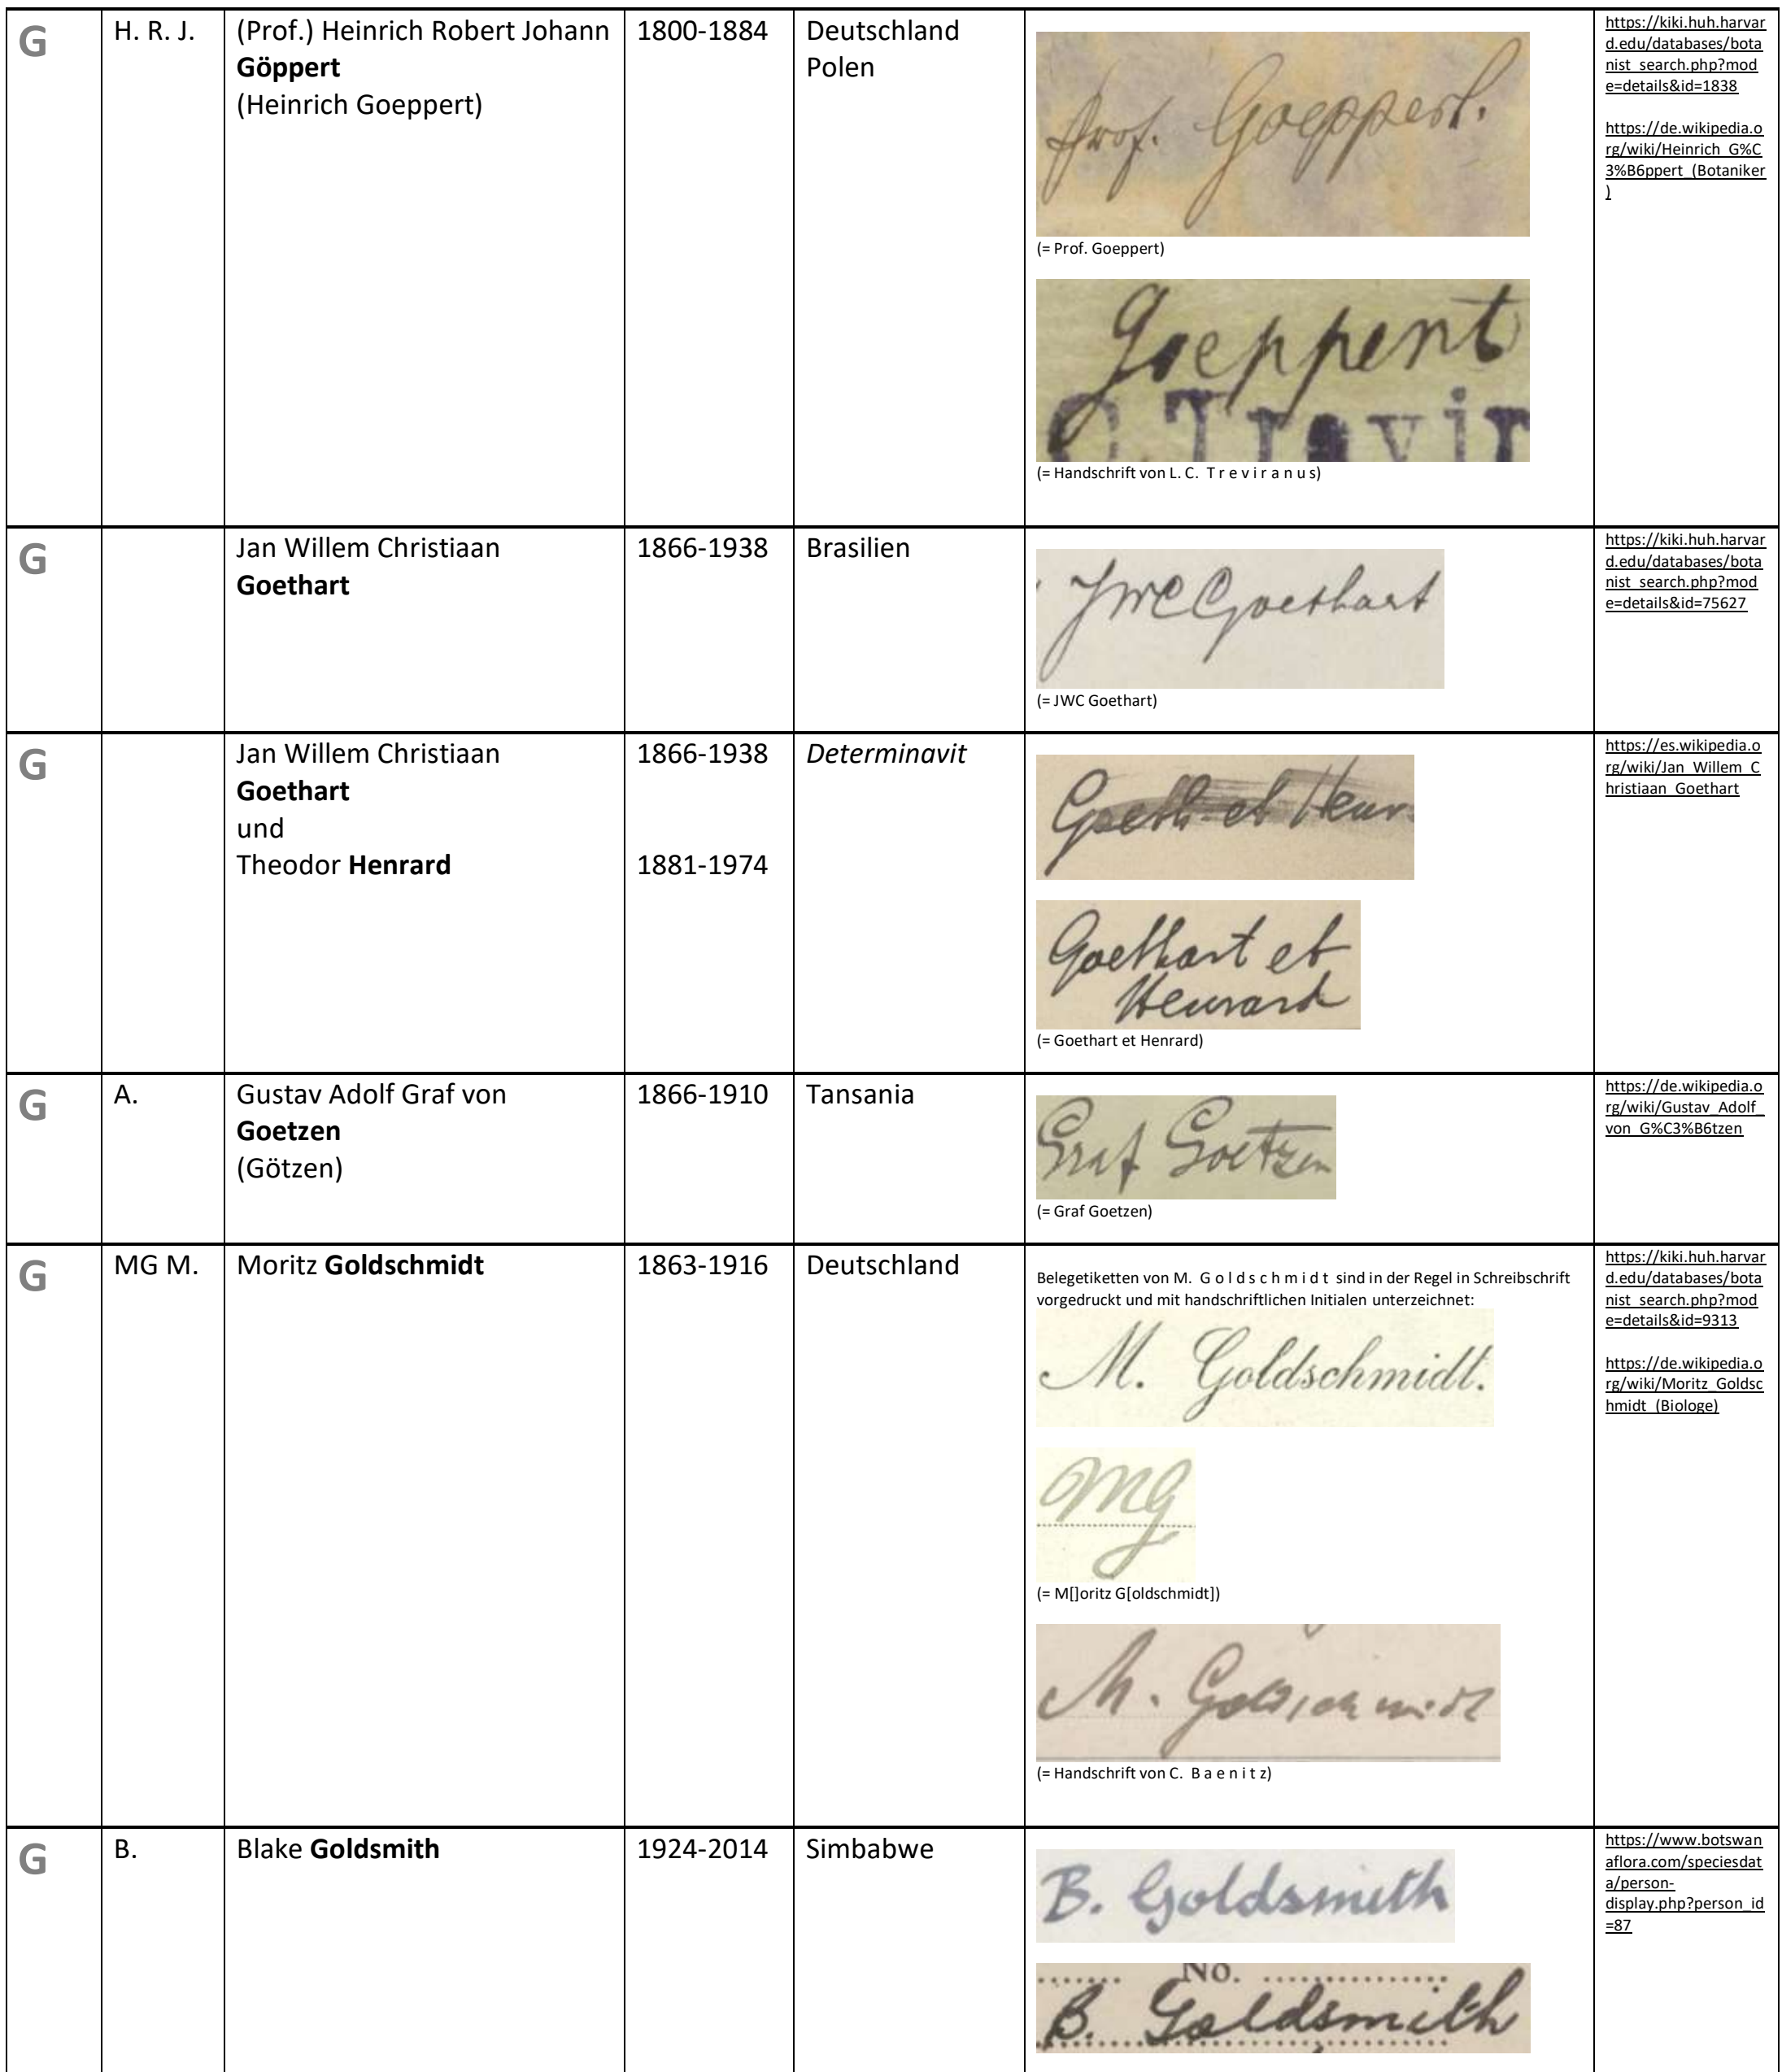 G
H. R. J.
(Prof.) Heinrich Robert Johann
Göppert
(Heinrich Goeppert)
1800-1884
Deutschland
Polen
Prof. Goeppert.
(= Prof. Goeppert)
Goeppert
C. Trevir
(= Handschrift von L. C. T r e v i r a n u s)
https://kiki.huh.harvar
d.edu/databases/bota
nist_search.php?mod
e=details&id=1838
https://de.wikipedia.o
rg/wiki/Heinrich_G%C
3%B6ppert_(Botaniker
)
G
Jan Willem Christiaan
Goethart
1866-1938
Brasilien
JWC Goethart
(= JWC Goethart)
https://kiki.huh.harvar
d.edu/databases/bota
nist_search.php?mod
e=details&id=75627
G
Jan Willem Christiaan
Goethart
und
Theodor Henrard
1866-1938
1881-1974
Determinavit
Goeth. et Henr.
Goethart et
Henrard
(= Goethart et Henrard)
https://es.wikipedia.o
rg/wiki/Jan_Willem_C
hristiaan_Goethart
G
A.
Gustav Adolf Graf von
Goetzen
(Götzen)
1866-1910
Tansania
Graf Goetzen
(= Graf Goetzen)
https://de.wikipedia.o
rg/wiki/Gustav_Adolf_
von_G%C3%B6tzen
G
MG M.
Moritz Goldschmidt
1863-1916
Deutschland
Belegetiketten von M. G o l d s c h m i d t sind in der Regel in Schreibschrift
vorgedruckt und mit handschriftlichen Initialen unterzeichnet:
M. Goldschmidt.
MG
(= M[]oritz G[oldschmidt])
M. Goldschmidt
(= Handschrift von C. B a e n i t z)
https://kiki.huh.harvar
d.edu/databases/bota
nist_search.php?mod
e=details&id=9313
https://de.wikipedia.o
rg/wiki/Moritz_Goldsc
hmidt_(Biologe)
G
B.
Blake Goldsmith
1924-2014
Simbabwe
B. Goldsmith
No.
B. Goldsmith
https://www.botswan
aflora.com/speciesdat
a/person-
display.php?person_id
=87